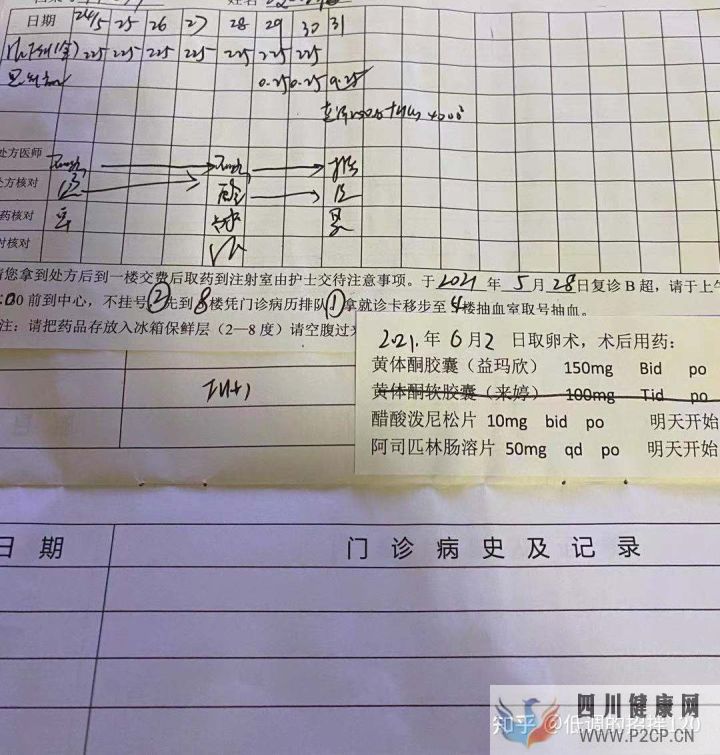 姓名
日期 24/5 25 26 27 28 29 30 31
225 225 225 225 225 225 225
0.25 0.25 0.25
处方医师
处方核对
药核对
对核对
请您拿到处方后到一楼交费后取药到注射室由护士交待注意事项。于2021年5月28日复诊B超,请于上午
:00前到中心,不挂号②先到8楼凭门诊病历排队①拿就诊卡移步至4楼抽血室取号抽血。
注:请把药品存放入冰箱保鲜层(2—8度)请空腹过来
2021.年6月2日取卵术,术后用药:
黄体酮胶囊(益玛欣) 150mg Bid po
黄体酮软胶囊(来婷) 100mg Tid po
醋酸泼尼松片 10mg bid po 明天开始
阿司匹林肠溶片 50mg qd po 明天开始
日期 门诊病史及记录
四川健康网
知乎 @低调的招摇120
WWW.P2CP.CN